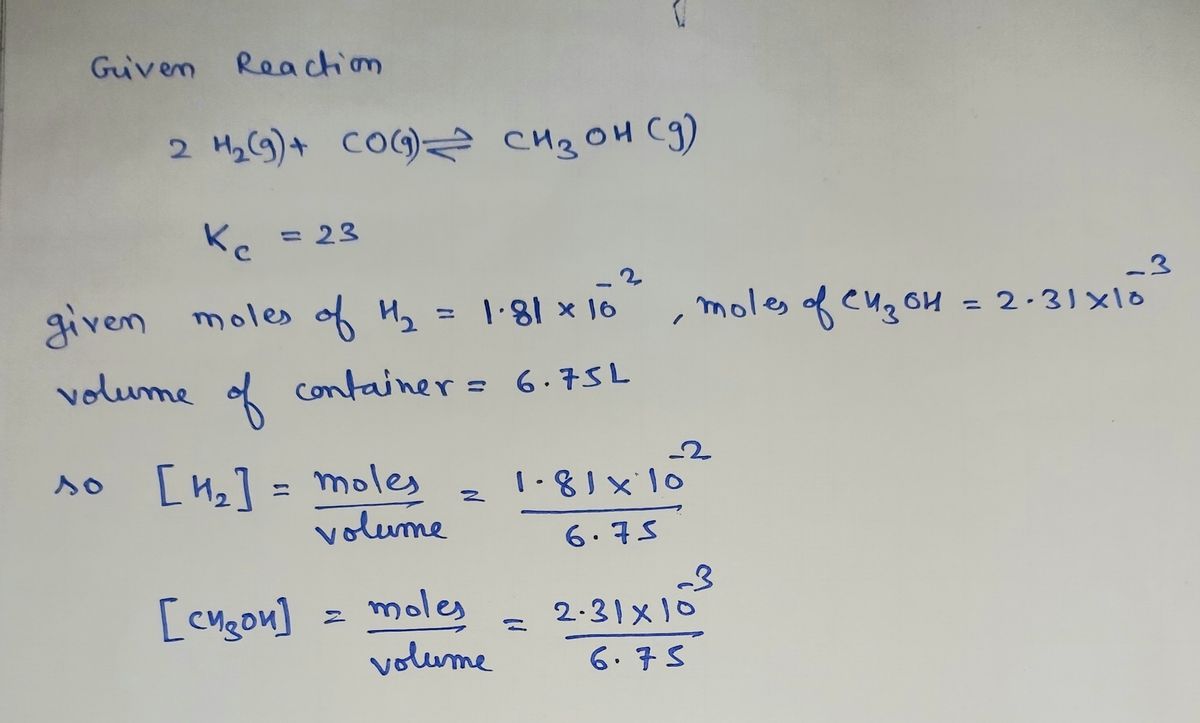 Given Reaction
2 H₂(g) + CO(g) ⇌ CH₃OH (g)
Kc = 23
given moles of H₂ = 1.81 × 10⁻², moles of CH₃OH = 2.31×10⁻³
volume of container = 6.75L
so [H₂] = moles/volume = 1.81×10⁻²/6.75
[CH₃OH] = moles/volume = 2.31×10⁻³/6.75